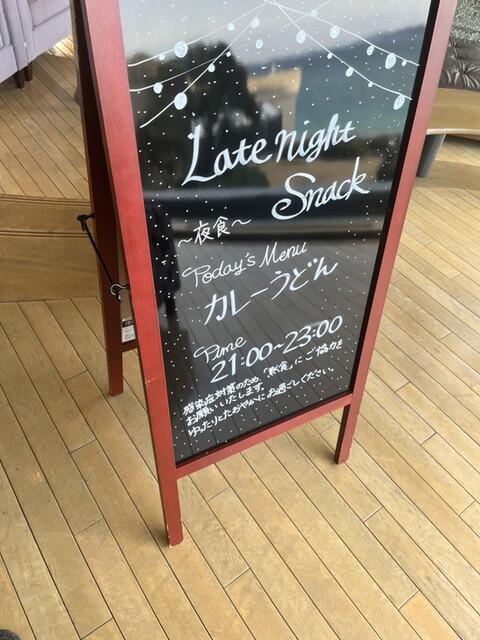 Late night
Snack
～夜食～
Today's Menu
カレーうどん
Time
21:00~23:00
感染症対策のため、「黙食」にご協力を
お願いいたします。
ゆったりとたおやかにお過ごしください。